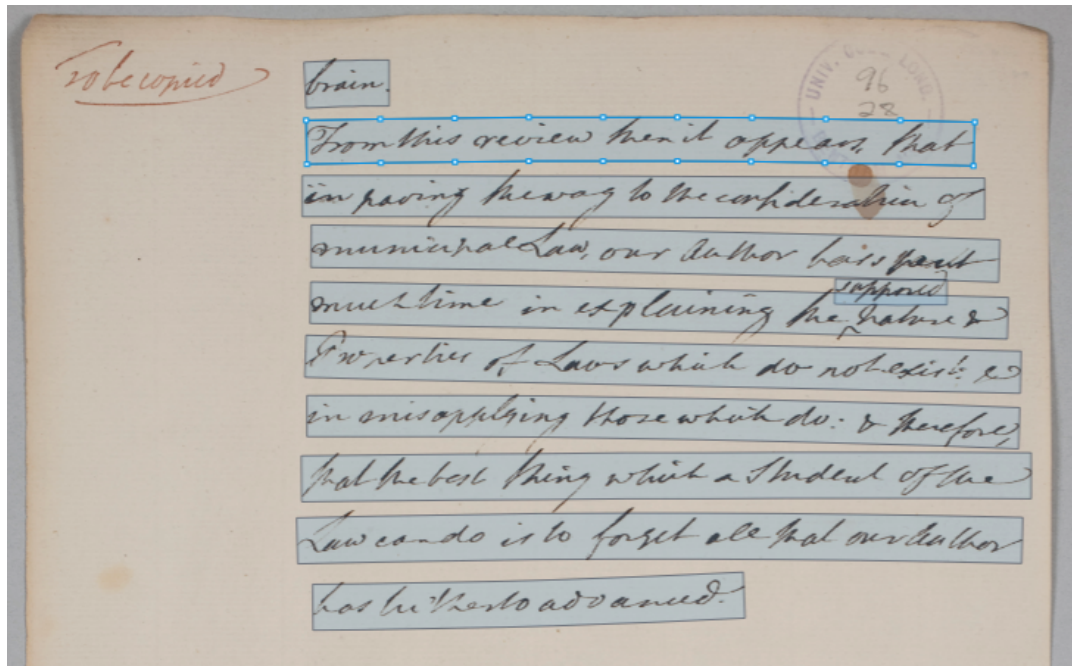 to be copied
UNIV. COLL. LOND.
96
28
brain.
From this review then it appears, that
in paving the way to the consideration of
municipal Law, our Author has spent
supposed
much time in explaining the nature &
Properties of Laws which do not exist: &
in misapplying those which do: & therefore,
that the best thing which a Student of the
Law can do is to forget all that our Author
has hitherto advanced.